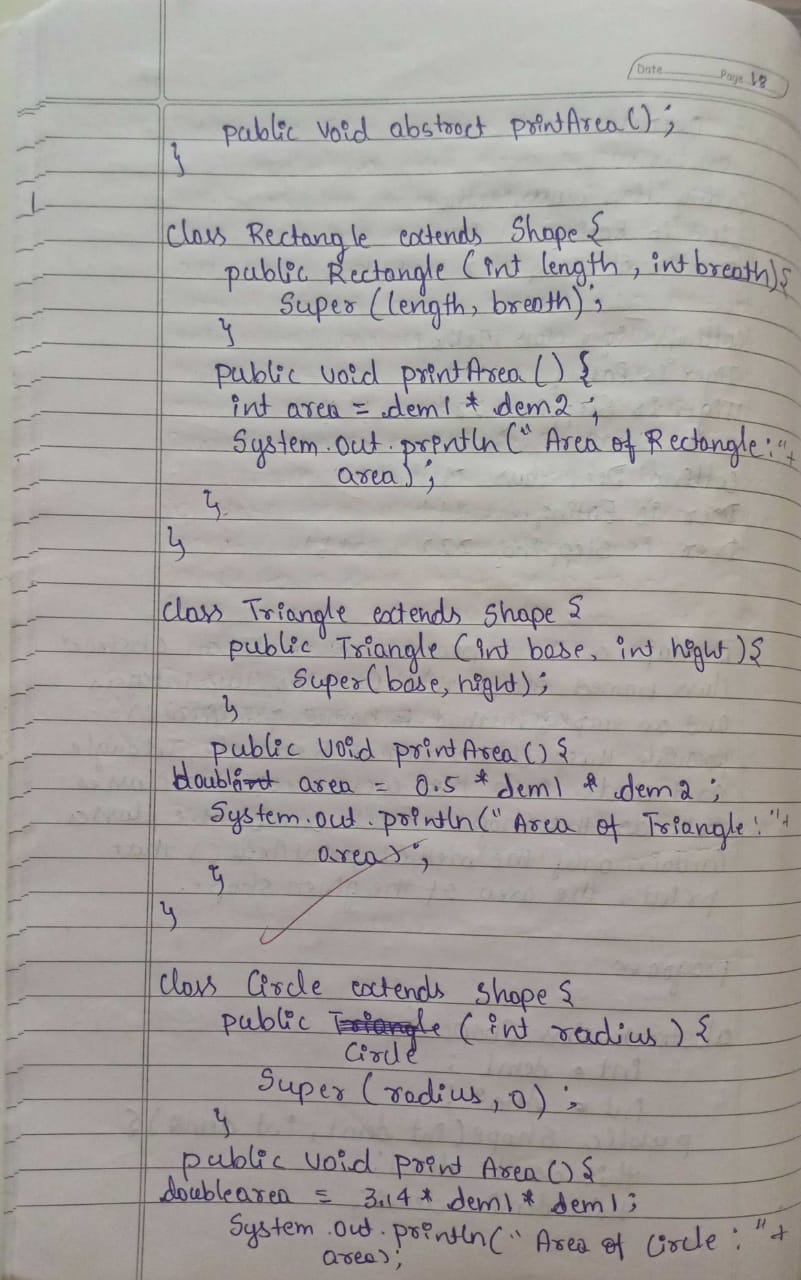 Date
Page 18
public void abstract printArea();
}
class Rectangle extends Shape {
public Rectangle (int length, int breath){
Super (length, breath);
}
public void printArea () {
int area = dem1 * dem2;
System.out.println(" Area of Rectangle:"+
area);
}
}
class Triangle extends Shape {
public Triangle (int base, int hight){
Super(base, hight);
}
public void printArea () {
double area = 0.5 * dem1 * dem2;
System.out.println(" Area of Triangle:"+
area);
}
}
class Circle extends Shape {
public Triangle (int radius) {
Circle
Super (radius, 0);
}
public void print Area () {
double area = 3.14 * dem1 * dem1;
System.out.println(" Area of Circle:"+
area);